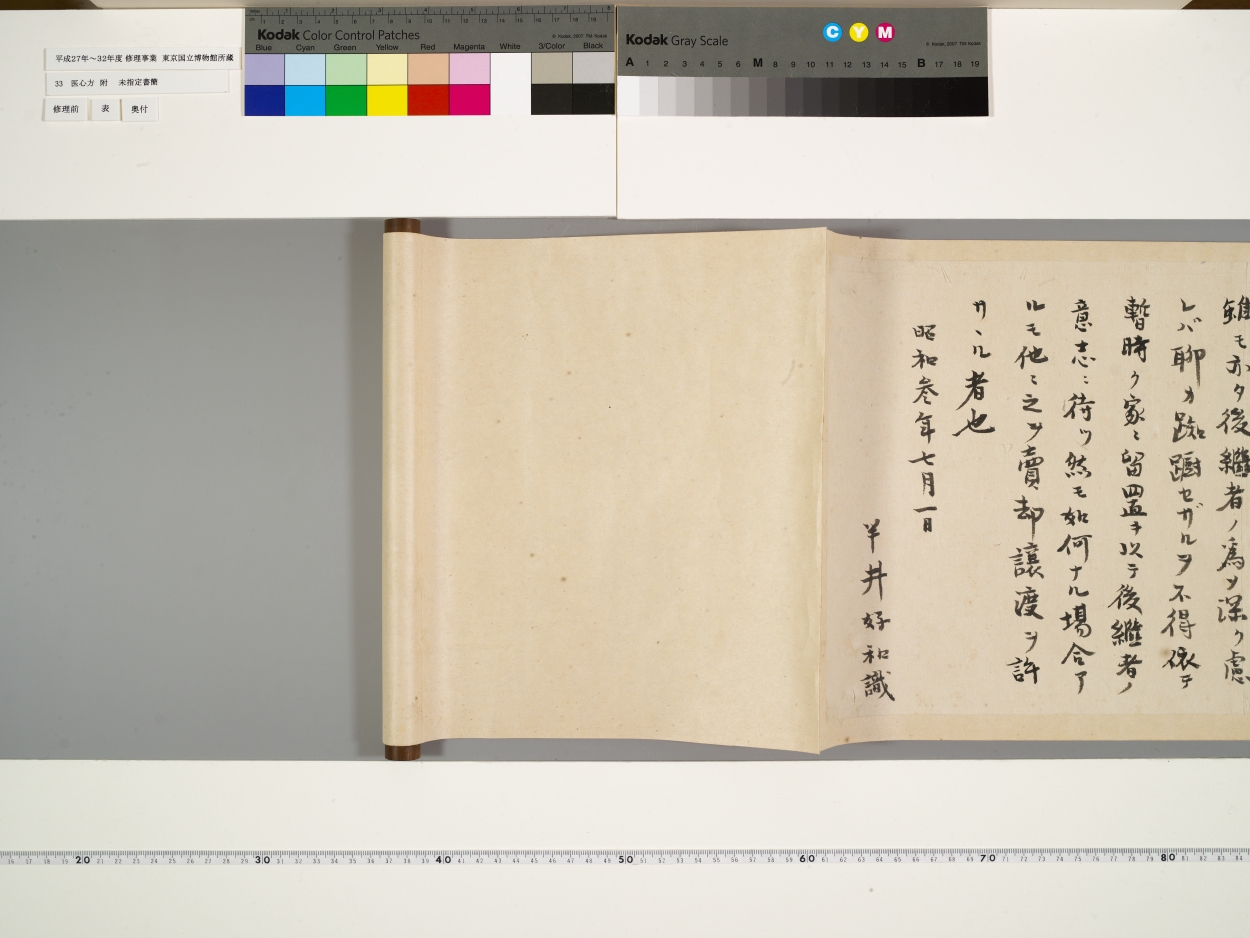 平成27年～32年度 修理事業 東京国立博物館所蔵
33 医心方 附 未指定書簡
修理前 表 奥付
Kodak Color Control Patches
Blue Cyan Green Yellow Red Magenta White 3/Color Black
Kodak Gray Scale
C Y M
A 1 2 3 4 5 6 M 8 9 10 11 12 13 14 15 B 17 18 19
雖モ亦タ後繼者ノ為メ深ク慮
レバ聊カ踟躕セザルヲ不得依テ
暫時ク家ニ留置キ以テ後繼者ノ
意志ニ待ツ然モ如何ナル場合ア
ルモ他ニ之ヲ賣却讓渡ヲ許
サヽル者也
昭和参年七月一日
半井好和識
20 30 40 50 60 70 80